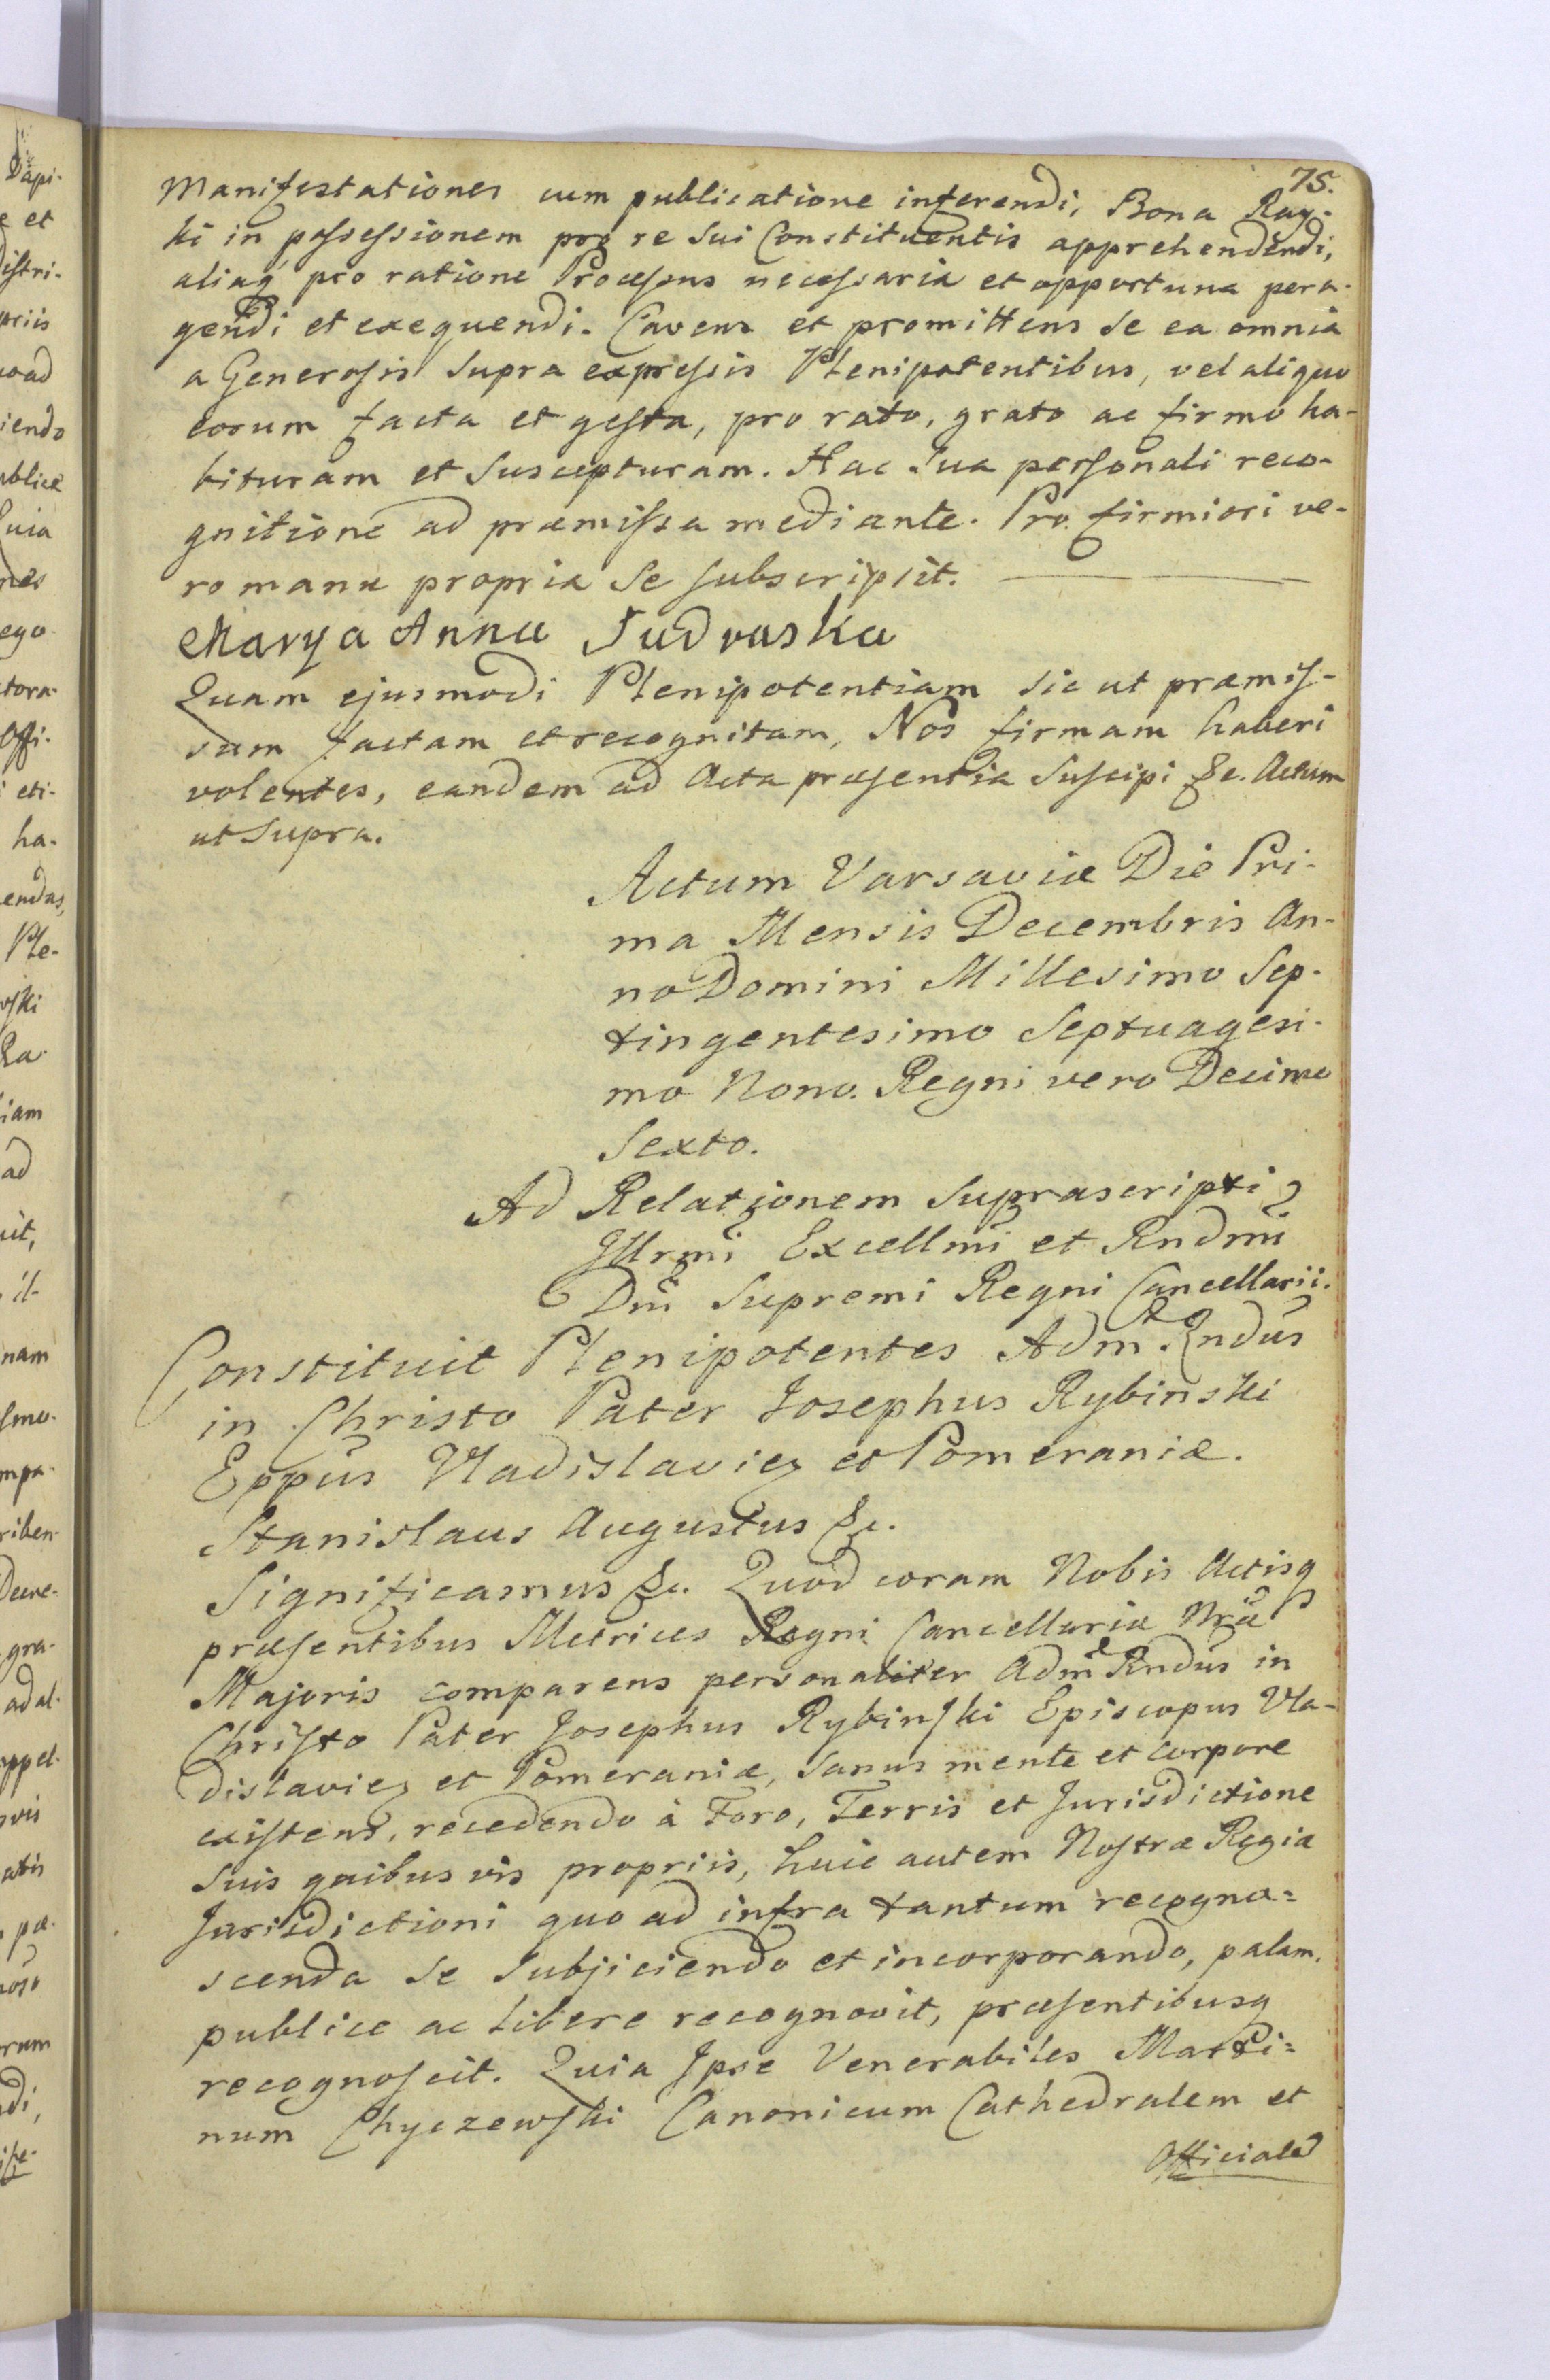 75.
Manifestationes cum publicatione inferendi, Bona Ray-
ki in possessionem pro re sui Constituentis apprehendendi,
aliaq pro ratione Processus necessaria et opportuna pera-
gendi et exequendi. Cavens et promittens se ea omnia
a Generosis supra expressis Plenipotentibus, vel aliquo
eorum facta et gesta, pro rato, grato ac firmo ha-
bituram et suscepturam. Hac sua personali reco-
gnitione ad præmissa mediante. Pro firmiori ve-
ro manu propria se subscripsit.
Marya Anna Sudraska
Quam ejusmodi Plenipotentiam sic ut præmis-
sum factam et recognitam, Nos firmam haberi
volentes, eandem ad Acta præsentia suscipi &c. Actum
ut supra.
Actum Varsaviæ Die Pri-
ma Mensis Decembris An-
no Domini Millesimo Sep-
tingentesimo Septuagesi-
mo Nono. Regni vero Decimo
Sexto.
Ad Relationem suprascripti
Illrmi Excellmi et Rndmi
Dni Supremi Regni Cancellarii.
Constituit Plenipotentes Adm. Rndus
in Christo Pater Josephus Rybinski
Eppus Vladislavien et Pomeraniæ.
Stanislaus Augustus &c.
Significamus &c. Quod coram Nobis Actisq
præsentibus Metrices Regni Cancellariæ Nræ
Majoris comparens personaliter Adm Rndus in
Christo Pater Josephus Rybinski Episcopus Vla-
dislavien et Pomeraniæ, sanus mente et corpore
existens, recedendo à Foro, Terris et Jurisdictione
suis quibusvis propriis, huic autem Nostræ Regiæ
Jurisdictioni quo ad infra tantum recogno=
scenda se subjiciendo et incorporando, palam.
publice ac libere recognovit, præsentibusq
recognoscit. Quia Ipse Venerabiles Marti=
num Chyczewski Canonicum Cathedralem et
Officialē